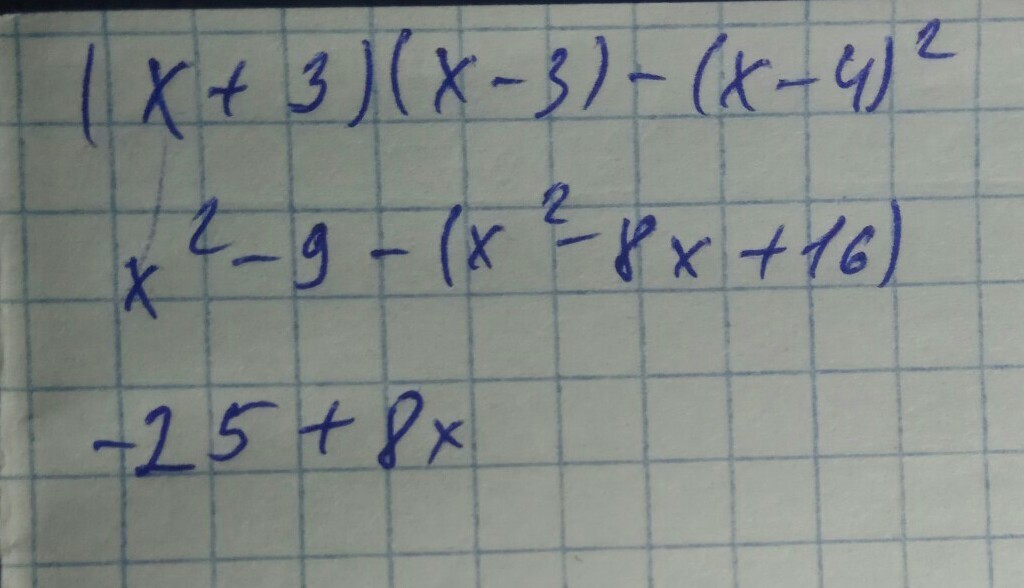 (x+3)(x-3)-(x-4)²
x²-9-(x²-8x+16)
-25+8x